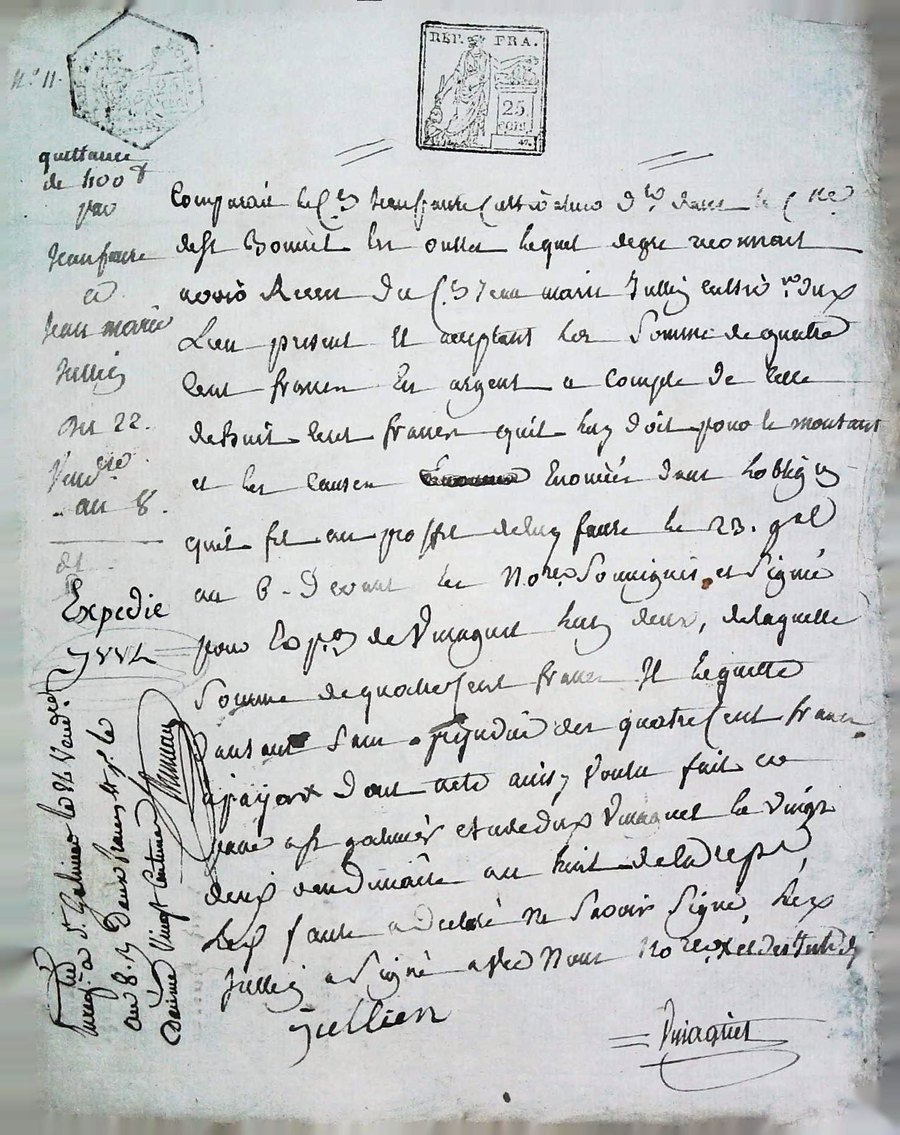 N° 11
REP. FRA.
25
CENT.
quittance
de 400 #
par
Jean faure
a
Jean marie
Jullien
Du 22.
Vend.re
an 8.
Expedié
Comparait le C.en Jean faure Cultivateur d.t dans la C.ne
de st Bonnet les oulles lequel de gré reconnait
avoir Receu Du C.en Jean marie Jullien cultiv.r Dud
Lieu present Et acceptant la Somme de quatre
Cent francs En argent a Compte de Celle
de huit Cent francs quil luy Doit pour le montant
et les Causes Enoncées dans Lobligon
quil fit au proffit deluy faure le 23. g.al
an 6 - Devant les No.res Soussignés et Signé
pour Exp.on de Vinagnet Lun deux, de laquelle
Somme de quatre Cent francs Il le quitte
Sans prejudice des quatre Cent francs
apayer Dont acte ainsy Voulu fait et
passé a st galmier etude dud Vinagnet le Vingt
deux vendémiaire an huit de la rep.e,
Led faure a declaré ne Savoir Signer, Led
Jullien a Signé avec Nous No.res
Jullien
Vinagnet
Enreg.é a S.t Galmier le 24 Vendre
an 8. Deux francs
Decime Vingt Centimes